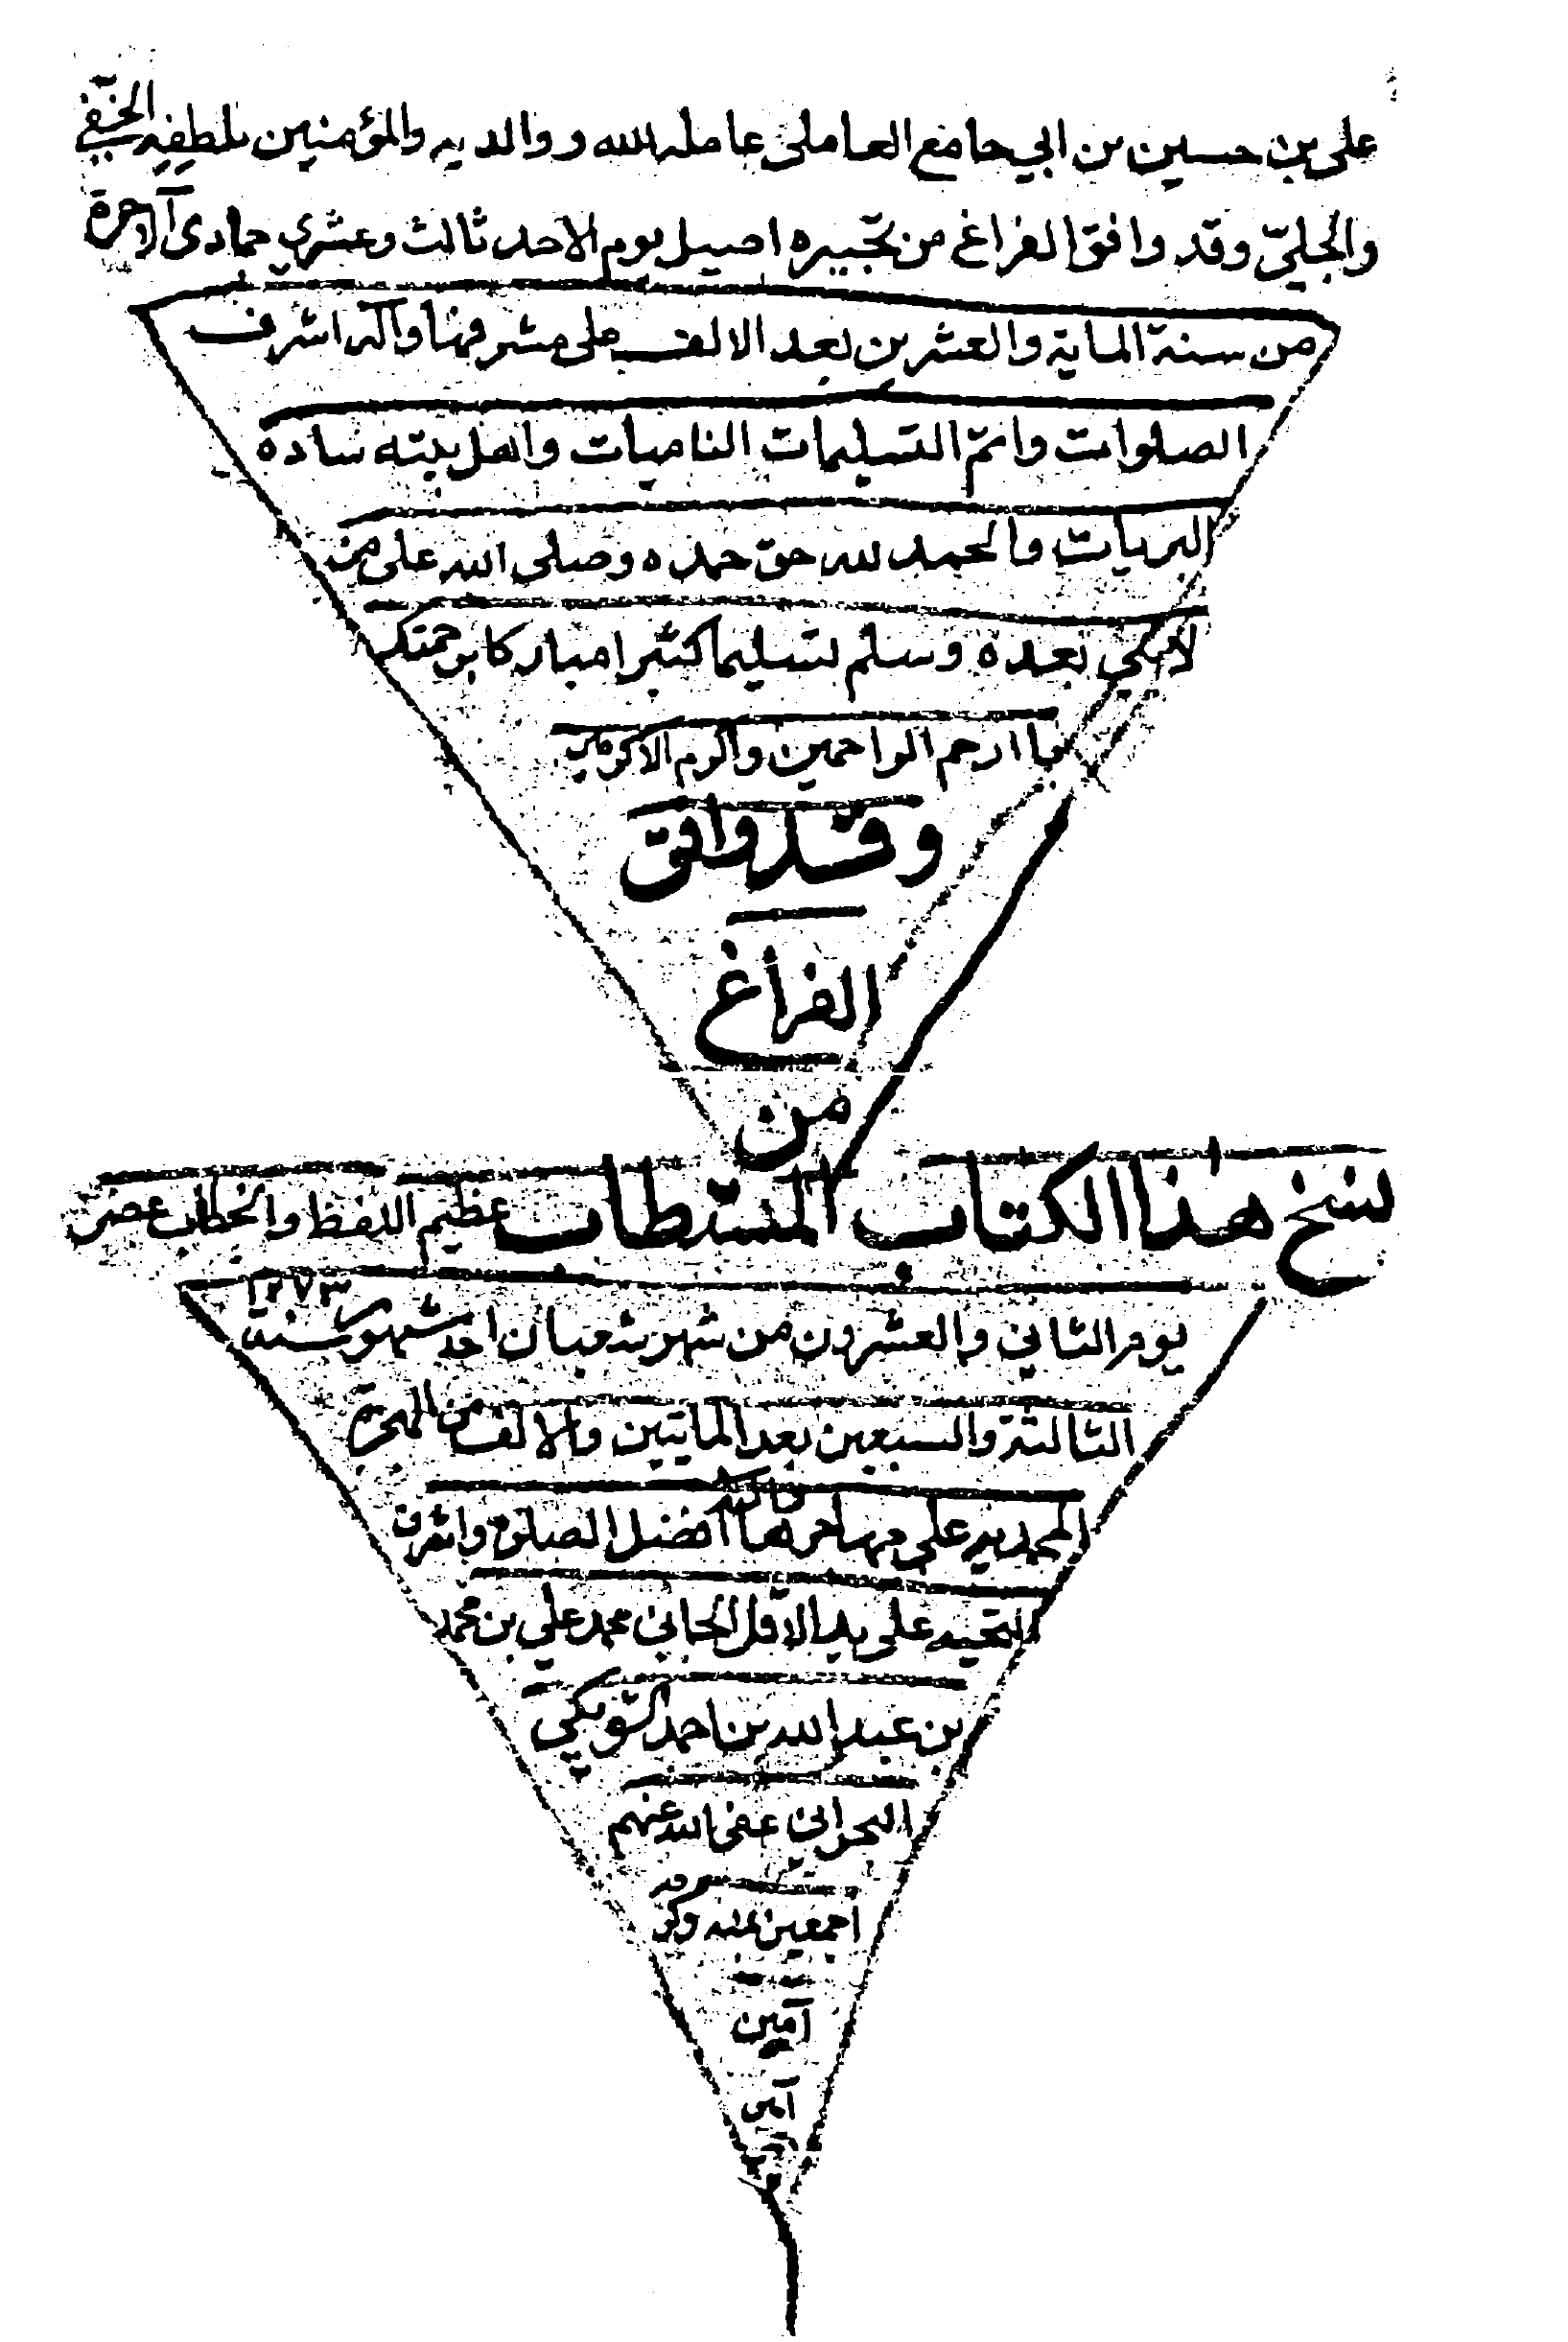 علي بن حسين بن ابي جامع العاملي عامله الله ووالديه والمؤمنين بلطفه الخفي
والجليّ وقد وافق الفراغ من تحبيره اصيل يوم الاحد ثالث وعشري جمادى الآخرة
من سنة الماية والعشرين بعد الالف على مشرفها وآله اشرف
الصلوات واتمّ التسليمات الناميات واهل بيته سادة
البريات والحمد لله حق حمده وصلى الله على من
لا نبي بعده وسلم تسليما كثيرا مباركا برحمتك
يا ارحم الراحمين واكرم الاكرمين
وقد وافق
الفراغ
من
نسخ هذا الكتاب المستطاب عظيم اللفظ والخطاب عصر
يوم الثاني والعشرون من شهر شعبان احد شهور سنة ١٢٧٣
الثالثة والسبعين بعد الماتين والالف من الهجرة
المحمديه على مهاجرها وآله افضل الصلوة واشرف
التحيه على يد الاقل الجاني محمد علي بن محمد
بن عبد الله بن احمد الشويكي
البحراني عفى الله عنهم
اجمعين بمنه وكرمه
آمين
آمين